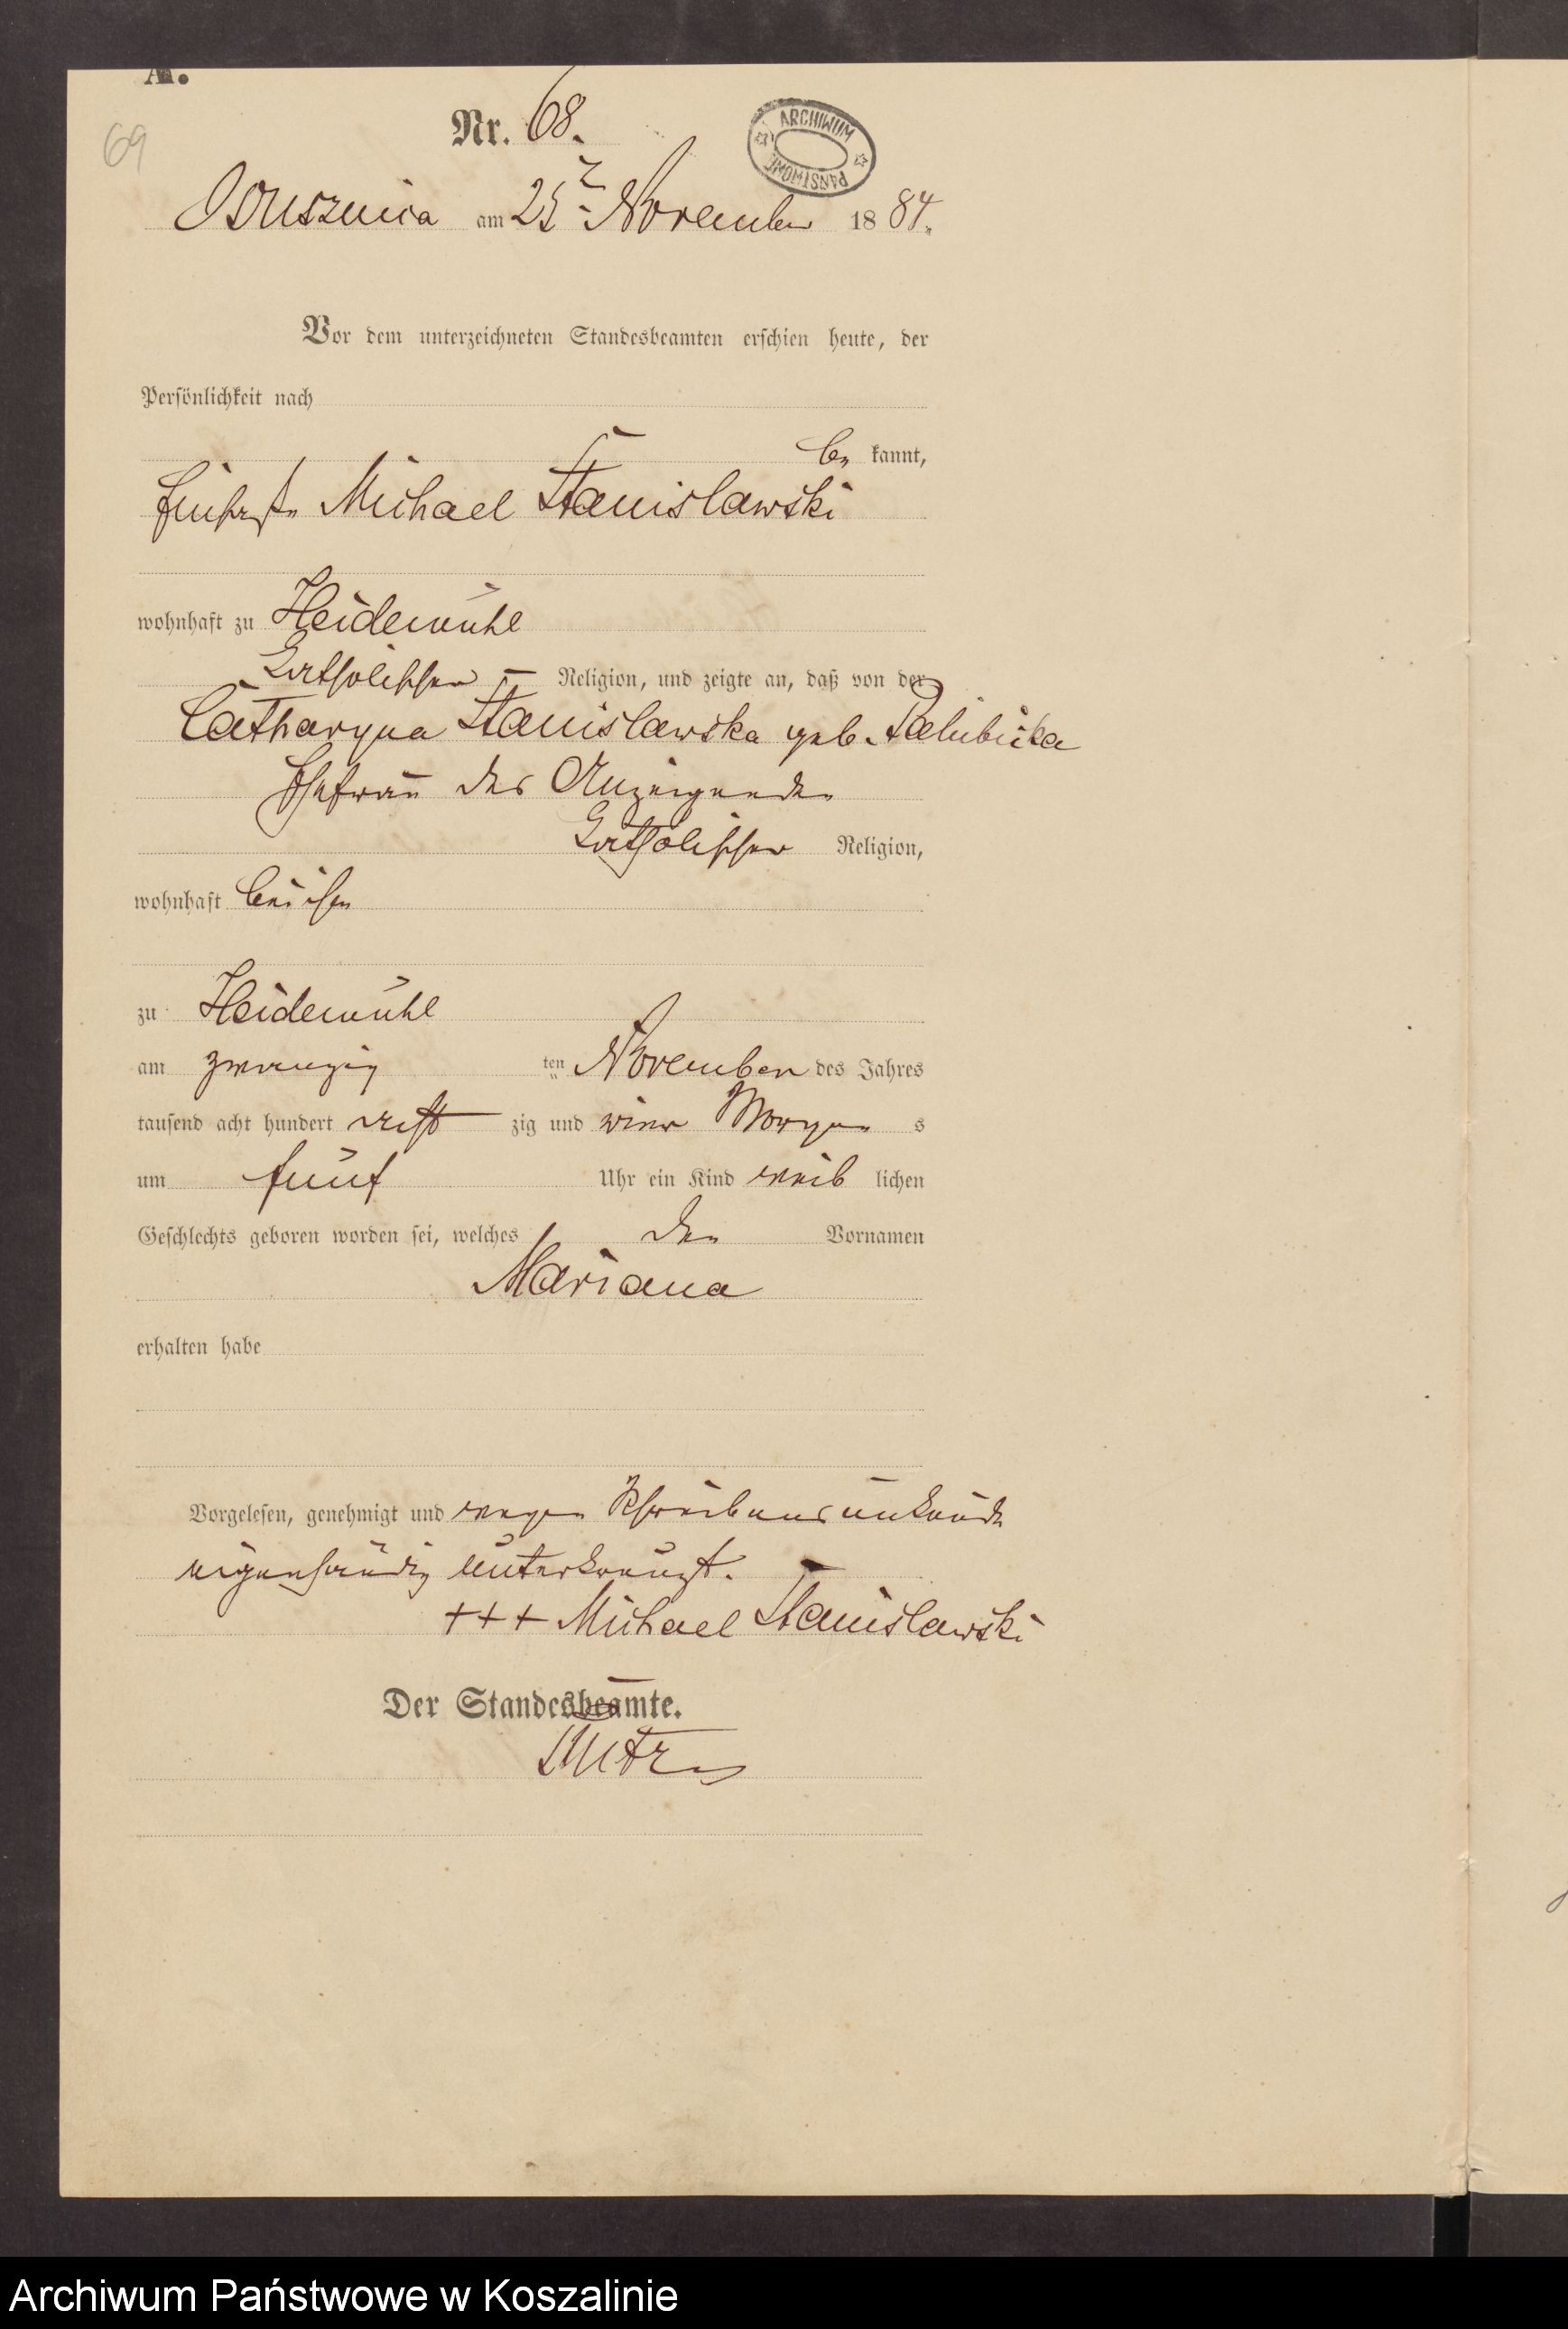 A.
69
Nr. 68.
ARCHIWUM PAŃSTWOWE
Osusznica am 25. November 1884.
Vor dem unterzeichneten Standesbeamten erschien heute, der
Persönlichkeit nach
be kannt,
Michael Stanislawski
wohnhaft zu Heidemühl
katholischer Religion, und zeigte an, daß von der
Catharyna Stanislawska geb. Palubicka
Ehefrau des Anzeigenden
katholischer Religion,
wohnhaft bei ihm
zu Heidemühl
am zwanzig ten November des Jahres
tausend acht hundert acht zig und vier Morgen s
um fünf Uhr ein Kind weib lichen
Geschlechts geboren worden sei, welches den Vornamen
Mariana
erhalten habe
Vorgelesen, genehmigt und wegen Schreibensunkunde
eigenhändig unterkreuzt.
+++ Michael Stanislawski
Der Standesbeamte.
Archiwum Państwowe w Koszalinie